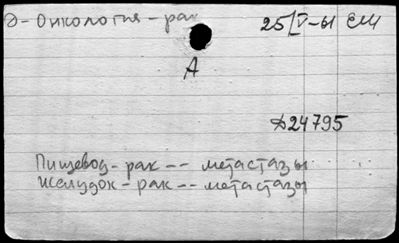 Д-Онкология-рак 25/V-ы ЕМ
А
Д24795
Пищевод-рак -- метастазы
Желудок-рак -- метастазы